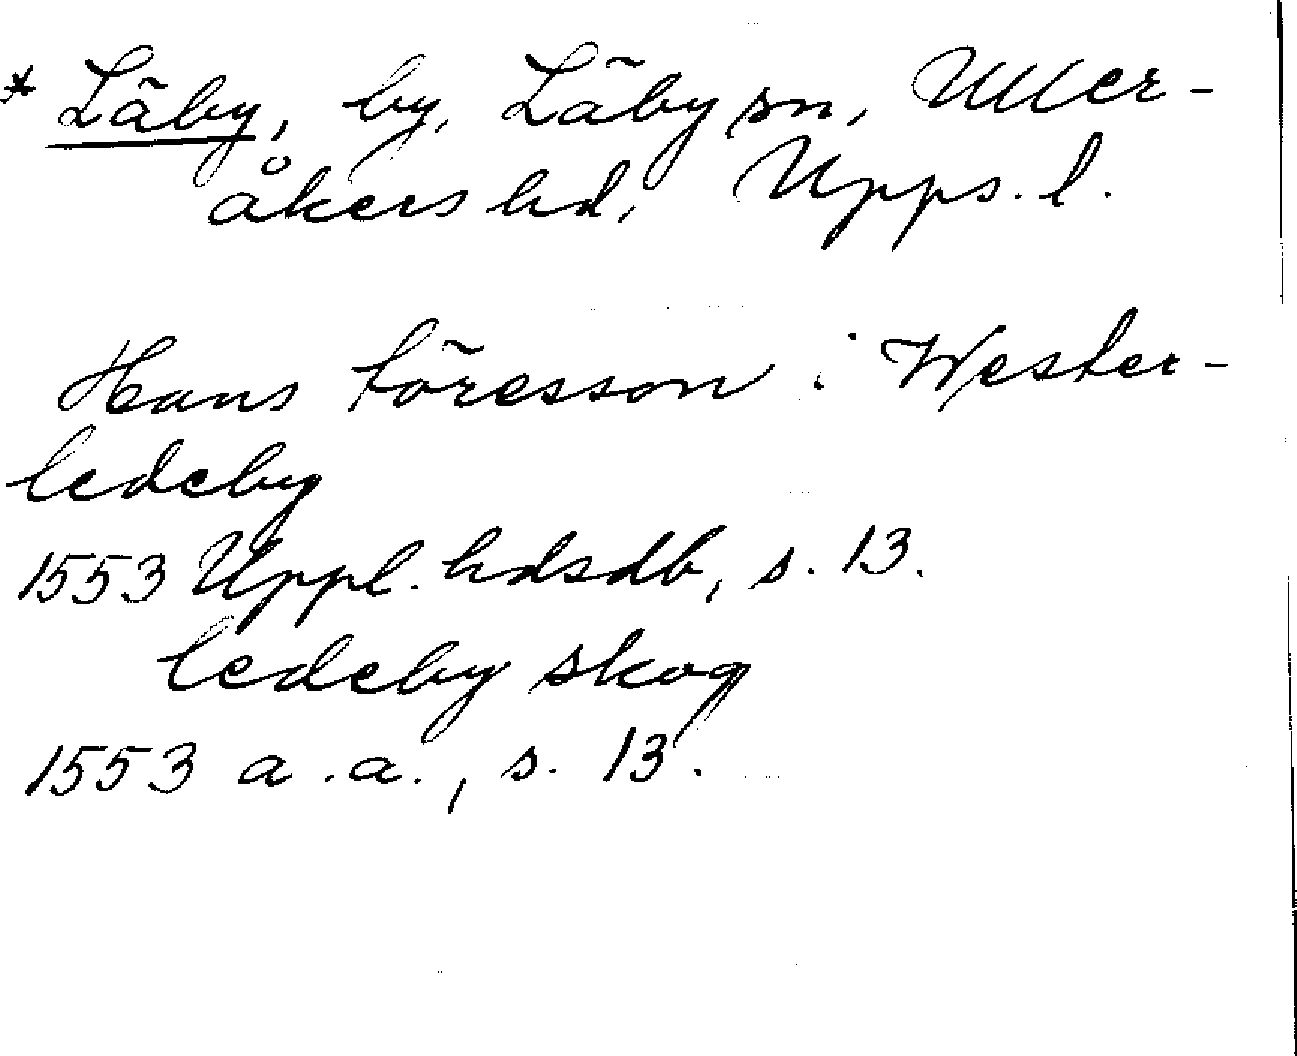 * Läby, by, Läby sn, Uller-
åkers hd, Upps. l.
Hans töresson i Wester-
ledeby
1553 Uppl. hdsdb, s. 13.
ledeby skog
1553 a.a., s. 13.